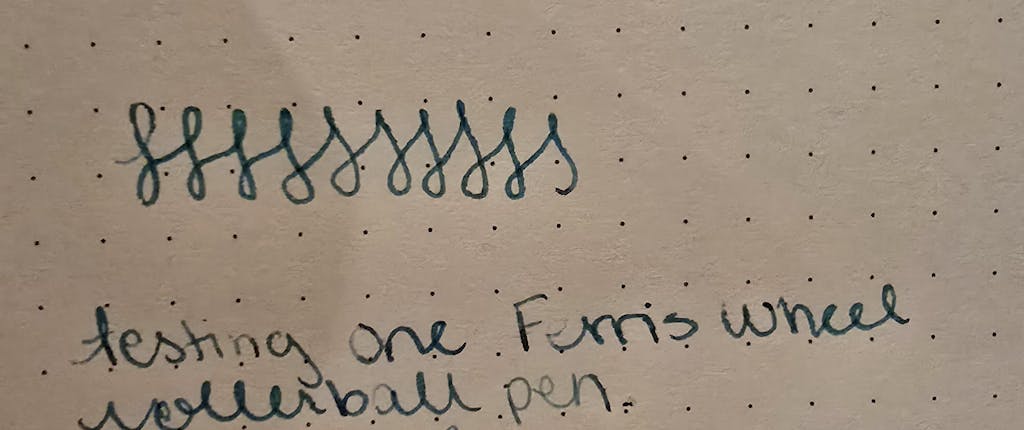 testing one Ferris wheel
rollerball pen.